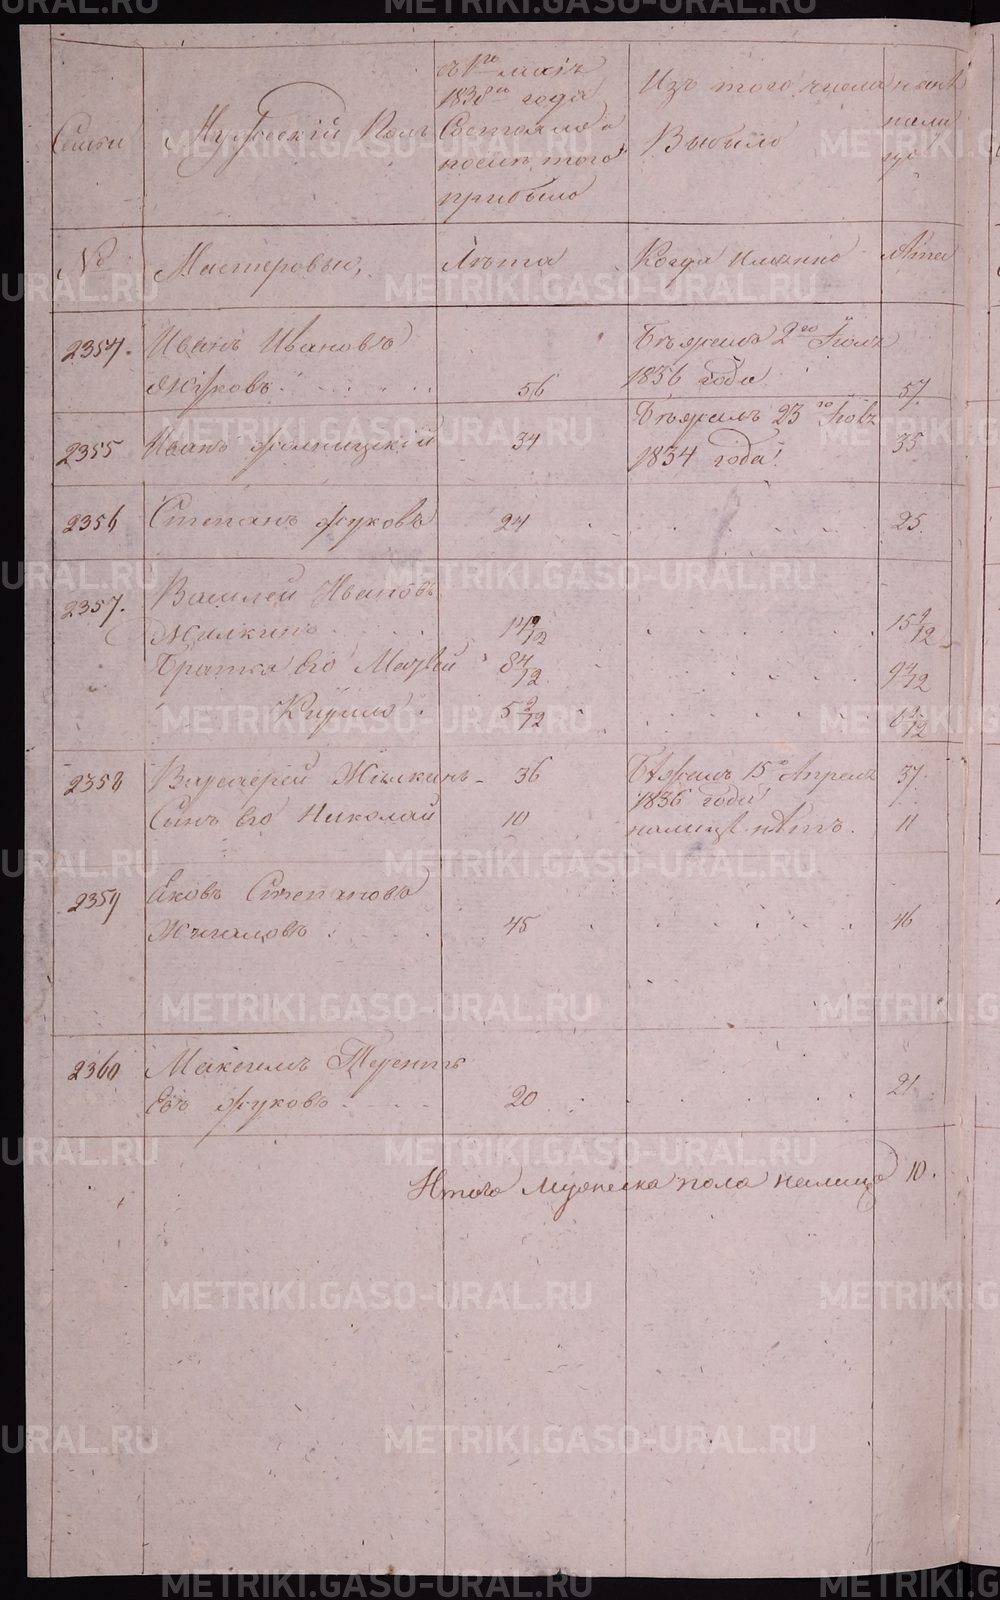 METRIKI.GASO-URAL.RU
Семьи
Мужескiй Полъ
съ 1го маiя
183 года
Состояло и
после того
прибыло
Изъ того числа
Выбыло
ныне
нали
цо
№
Мастеровые,
Лѣта
Когда имянно
Лѣта
Иванъ Ивановъ
56
Бѣжалъ 2го Iюля
1836 года
57.
2355
Иванъ
34
Бѣжалъ 23го
1834 года
35
2356
Степанъ Жуковъ
24
25.
2357.
Василей Ивановъ
Жилкинъ
14 9/12
15 9/12
Братья Его Матвей
8 4/12
9 4/12
Кирило
5 9/12
6 9/12
2358
Варфаерей Жилкинъ
36
Бѣжалъ 15го Апреля
37.
1836 года
Сынъ Его Николай
10
налицѣ нѣтъ.
11
2359
Яковъ Степановъ
Жигаловъ
45
46
2360
Максимъ Терентье
Евъ Жуковъ
20
21.
Итого Мужеска пола налицо 10.